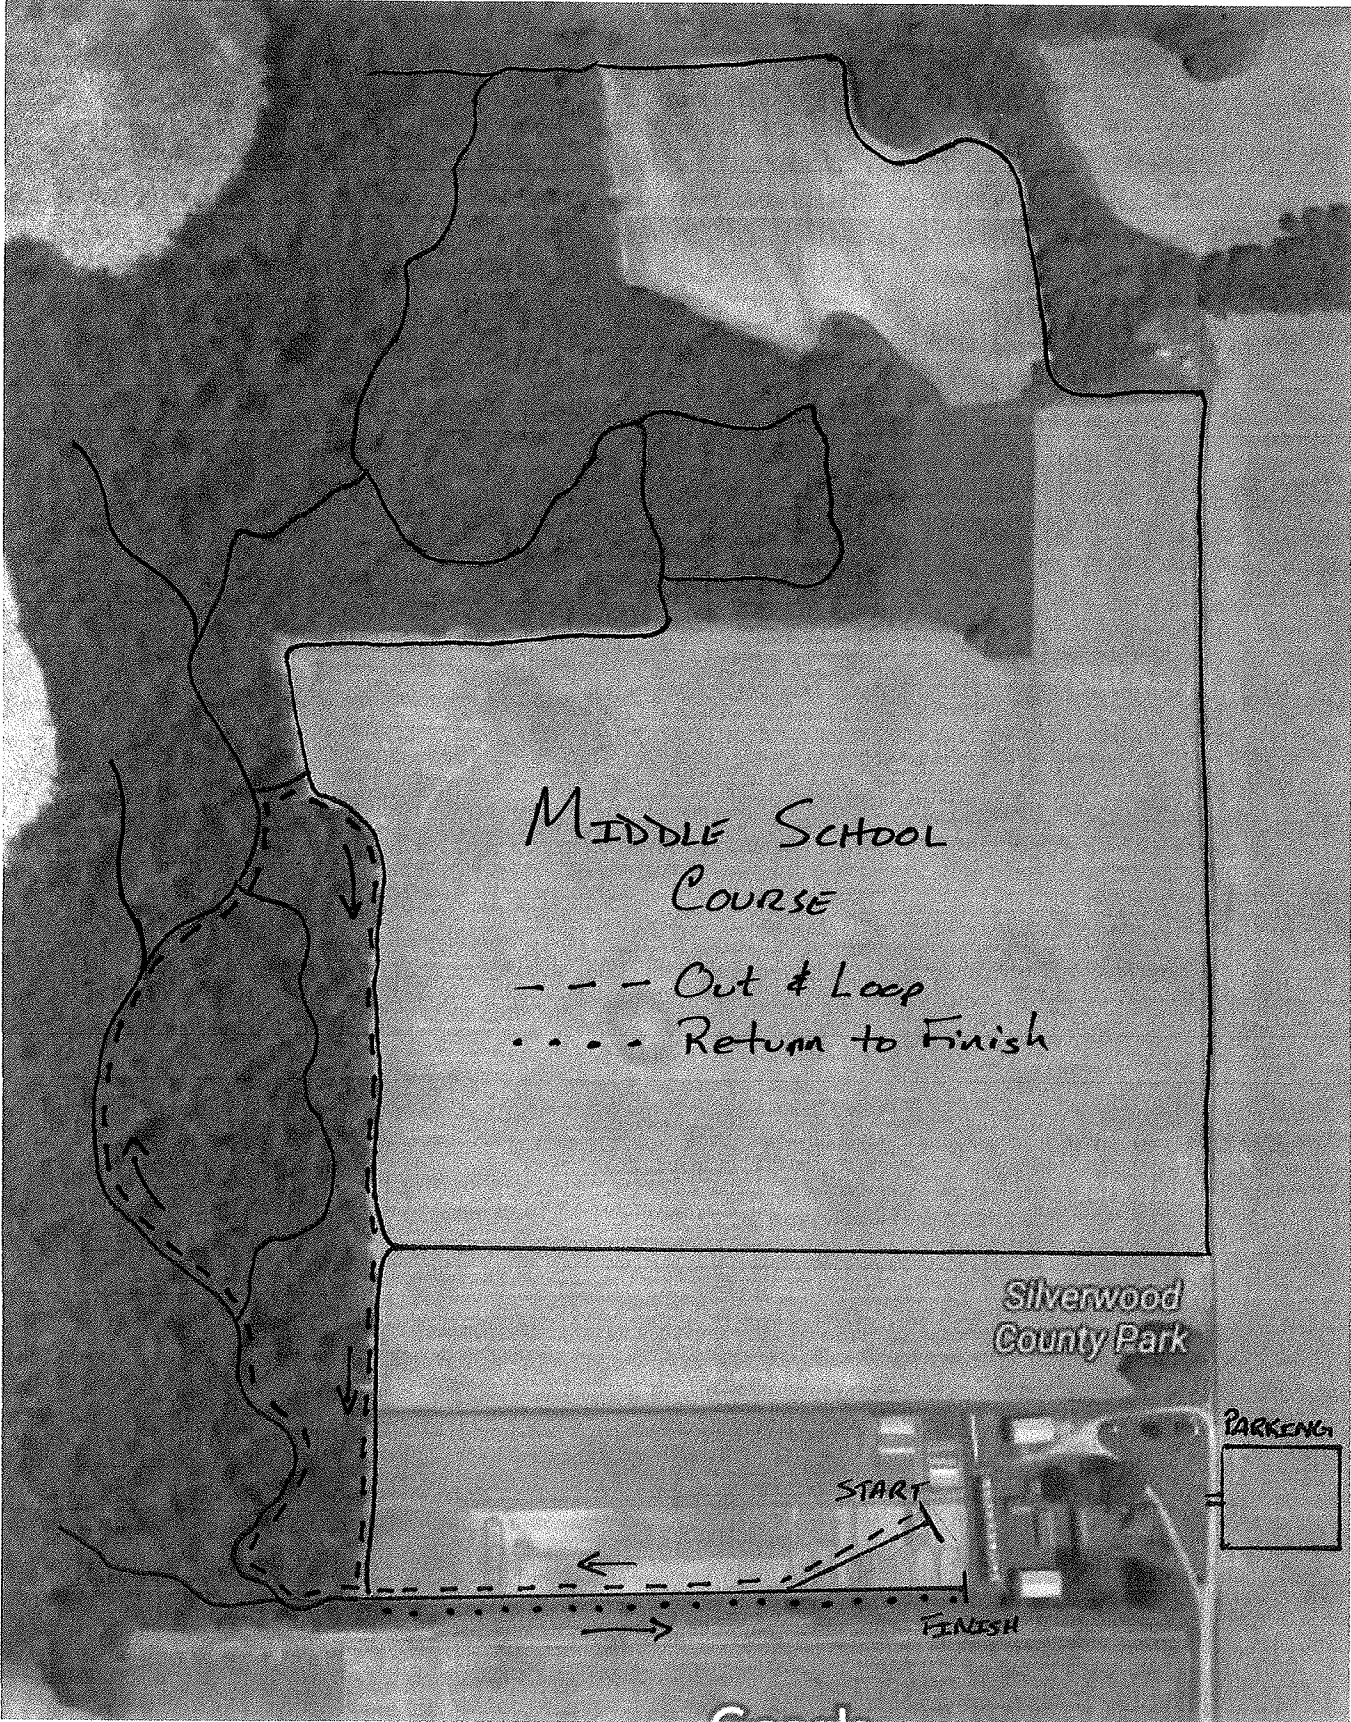 MIDDLE SCHOOL
COURSE
--- Out & Loop
.... Return to Finish
Silverwood
County Park
PARKING
START
FINISH